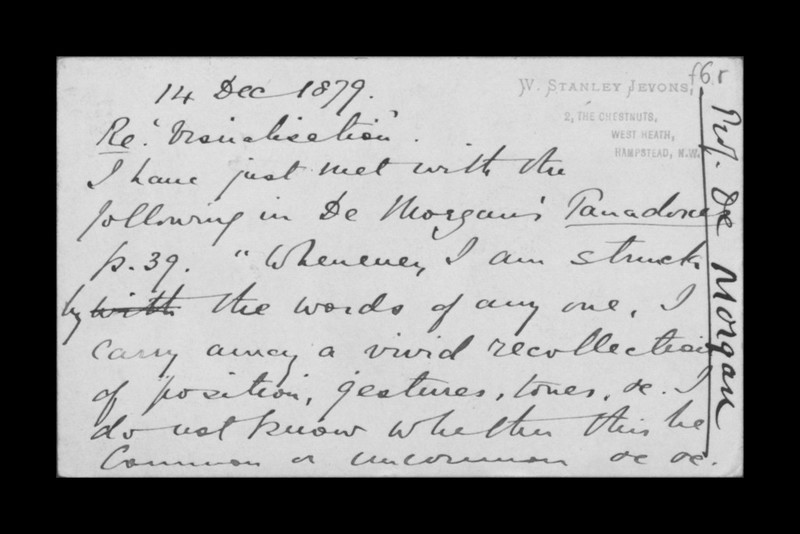 f6.r
W. STANLEY JEVONS,
2, THE CHESTNUTS,
WEST HEATH,
HAMPSTEAD, N.W.
14 Dec 1879.
Re "Visualisation".
I have just met with the
following in De Morgan's Paradoxes
p. 39. "Whenever I am struck
by with the words of any one, I
carry away a vivid recollection
of position, gestures, tones, &c. I
do not know whether this be
common or uncommon &c &c.
Prof. De Morgan